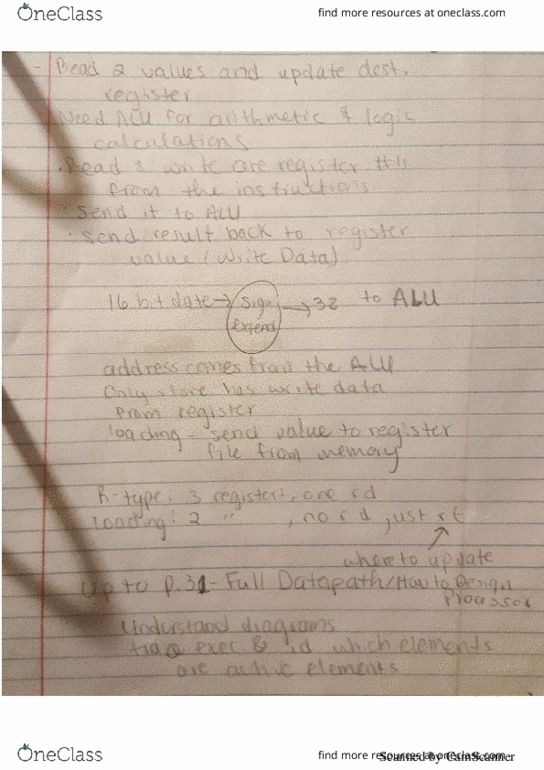 OneClass
find more resources at oneclass.com
- Read 2 values and update dest.
register
Need ALU for arithmetic & logic
calculations
· Read & write are register #'s
from the instructions
· Send it to ALU
· send result back to register
value (Write Data)
16 bit date → sign → 32 to ALU
extend
address comes from the ALU
Only store has write data
from register
loading - send value to register
file from memory
R-type: 3 registers, one rd
Loading: 2 " , no rd, just rt
where to update
Up to p.31 - Full Datapath/How to Design
Processor
Understand diagrams
exec & id which elements
are active elements
OneClass
find more resources at oneclass.com
Scanned by CamScanner